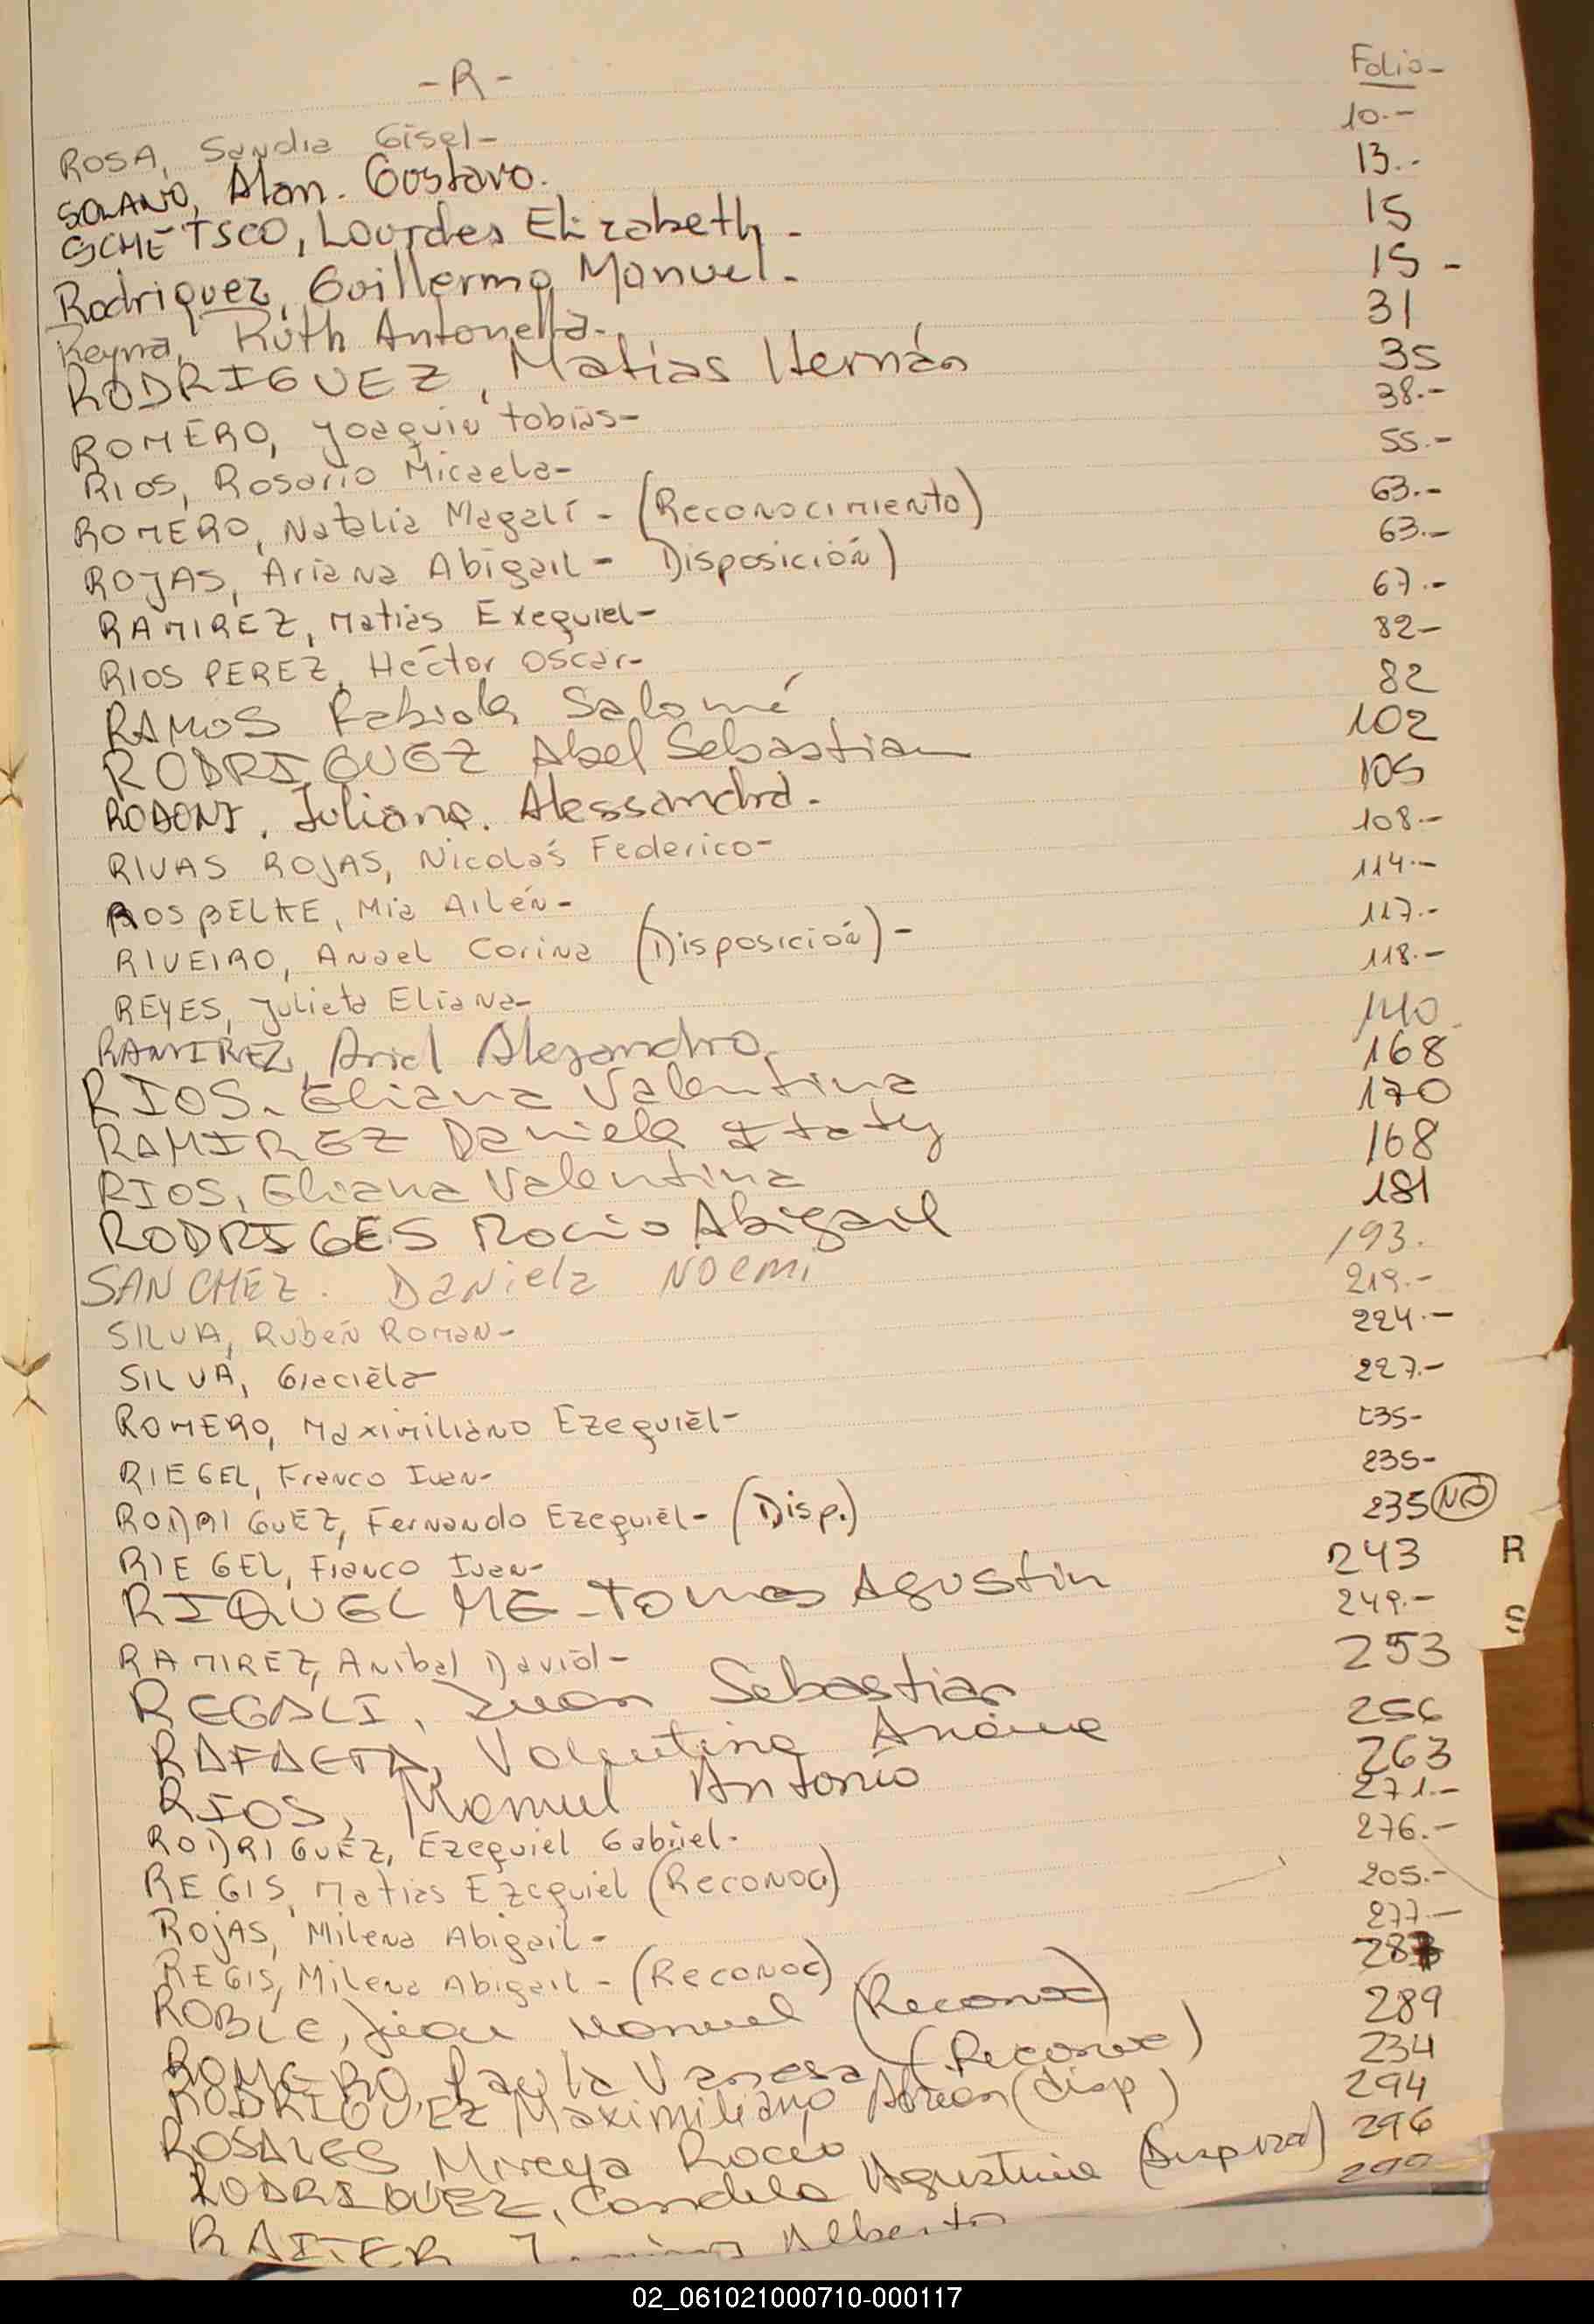 -R- Folio-
ROSA, Sandra Gisel- 10.-
SOLANO, Alan. Gustavo. 13.-
SCHETSCO, Lourdes Elizabeth - 15
Rodriguez, Guillermo Manuel. 15 -
Reyna, Ruth Antonella- 31
RODRIGUEZ, Matias Hernán 35
ROMERO, Joaquin tobias- 38.-
RIOS, Rosario Micaela- 55.-
ROMERO, Natalia Magalí - (Reconocimiento) 63.-
ROJAS, Ariana Abigail - Disposición) 63.-
RAMIREZ, Matias Exequiel- 67.-
RIOS PEREZ, Héctor Oscar- 82-
RAMOS Fabiola Salomé 82
RODRIGUEZ Abel Sebastian 102
RODONI, Juliana. Alessandra. 105
RIVAS ROJAS, Nicolás Federico- 108.-
ROSBELKE, Mia Ailén- 114.-
RIVEIRO, Anael Corina (Disposición)- 117.-
REYES, Julieta Eliana- 118.-
RAMIREZ, Ariel Alejandro. 140
RIOS. Eliana Valentina 168
RAMIREZ Daniela Itaty 170
RIOS, Eliana Valentina 168
RODRIGES Rocio Abigail 181
SANCHEZ. Daniela NOEMi 193.
SILVA, Rubén Roman- 219.-
SILVA, Graciela 224.-
ROMERO, Maximiliano Ezequiel- 227.-
RIEGEL, Franco Ivan- 235-
RODRIGUEZ, Fernando Ezequiel- (Disp.) 235-
RIEGEL, Franco Ivan- 235 NO
RIQUELME - Tomas Agustin 243 R
RAMIREZ, Anibal David- 249.- S
REGALI, Juan Sebastian 253
RAFAETA, Valentina Ariana 256
RIOS, Manuel Antonio 263
RODRIGUEZ, Ezequiel Gabriel. 271.-
REGIS, Matias Ezequiel (Reconoc) 276.-
ROJAS, Milena Abigail- 205.-
REGIS, Milena Abigail - (Reconoc) 277.-
ROBLE, Juan Manuel (Reconoc)
ROMERO, Paula Vanesa (Reconoc) 289
RODRIGUEZ Maximiliano Adrian (disp) 234
ROSALES Mireya Rocio 294
RODRIGUEZ, Candela Agustina 296
RAITER Alberto 299
02_061021000710-000117